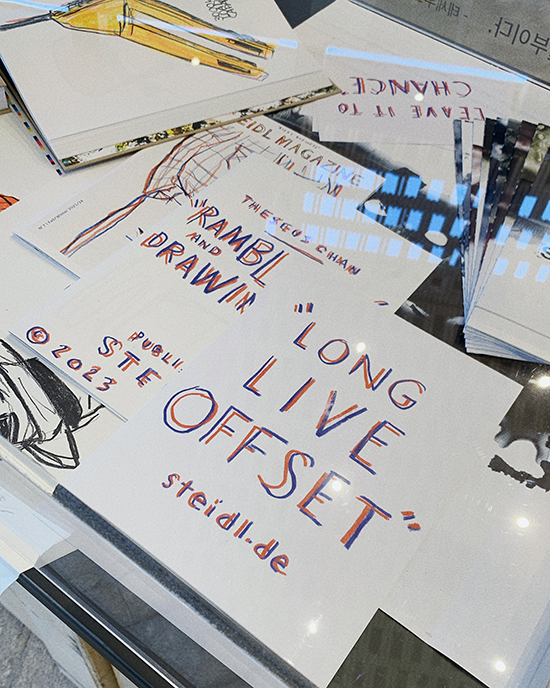 부이다.
- 테세우스
LEAVE IT TO
CHANCE"
IDL MAGAZINE
THESEUS CHAN
"RAMBL
AND
DRAWIN
PUBLI
STE
© 2023
"LONG
LIVE
OFFSET"
steidl.de